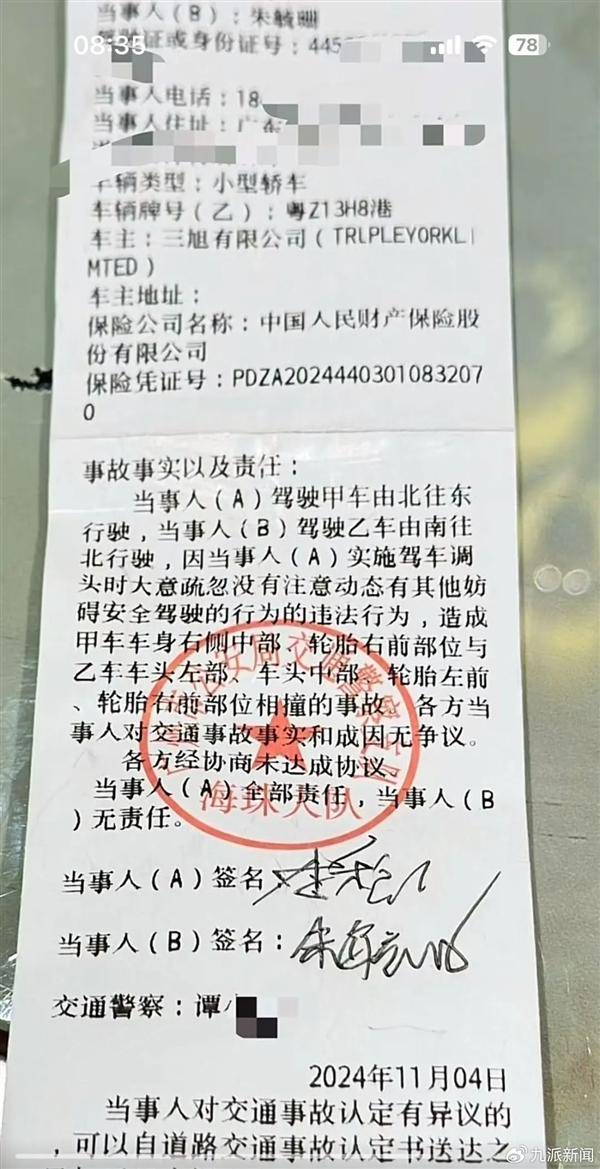 当事人(B):朱毓珊
08:35
证或身份证号:445
78
当事人电话:18
当事人住址:广东
车辆类型:小型轿车
车辆牌号(乙):粤Z13H8港
车主:三旭有限公司(TRLPLEYORKLI
MTED)
车主地址:
保险公司名称:中国人民财产保险股
份有限公司
保险凭证号:PDZA20244403010832070
0
事故事实以及责任:
当事人(A)驾驶甲车由北往东
行驶,当事人(B)驾驶乙车由南往
北行驶,因当事人(A)实施驾车调
头时大意疏忽没有注意动态有其他妨
碍安全驾驶的行为的违法行为,造成
甲车车身右侧中部、轮胎右前部位与
乙车车头左部、车头中部、轮胎左前
、轮胎右前部位相撞的事故。各方当
事人对交通事故事实和成因无争议。
各方经协商未达成协议。
当事人(A)全部责任,当事人(B
)无责任。
公安局交通警察支队
海珠大队
当事人(A)签名:
当事人(B)签名:
交通警察:谭
2024年11月04日
当事人对交通事故认定有异议的
,可以自道路交通事故认定书送达之
九派新闻